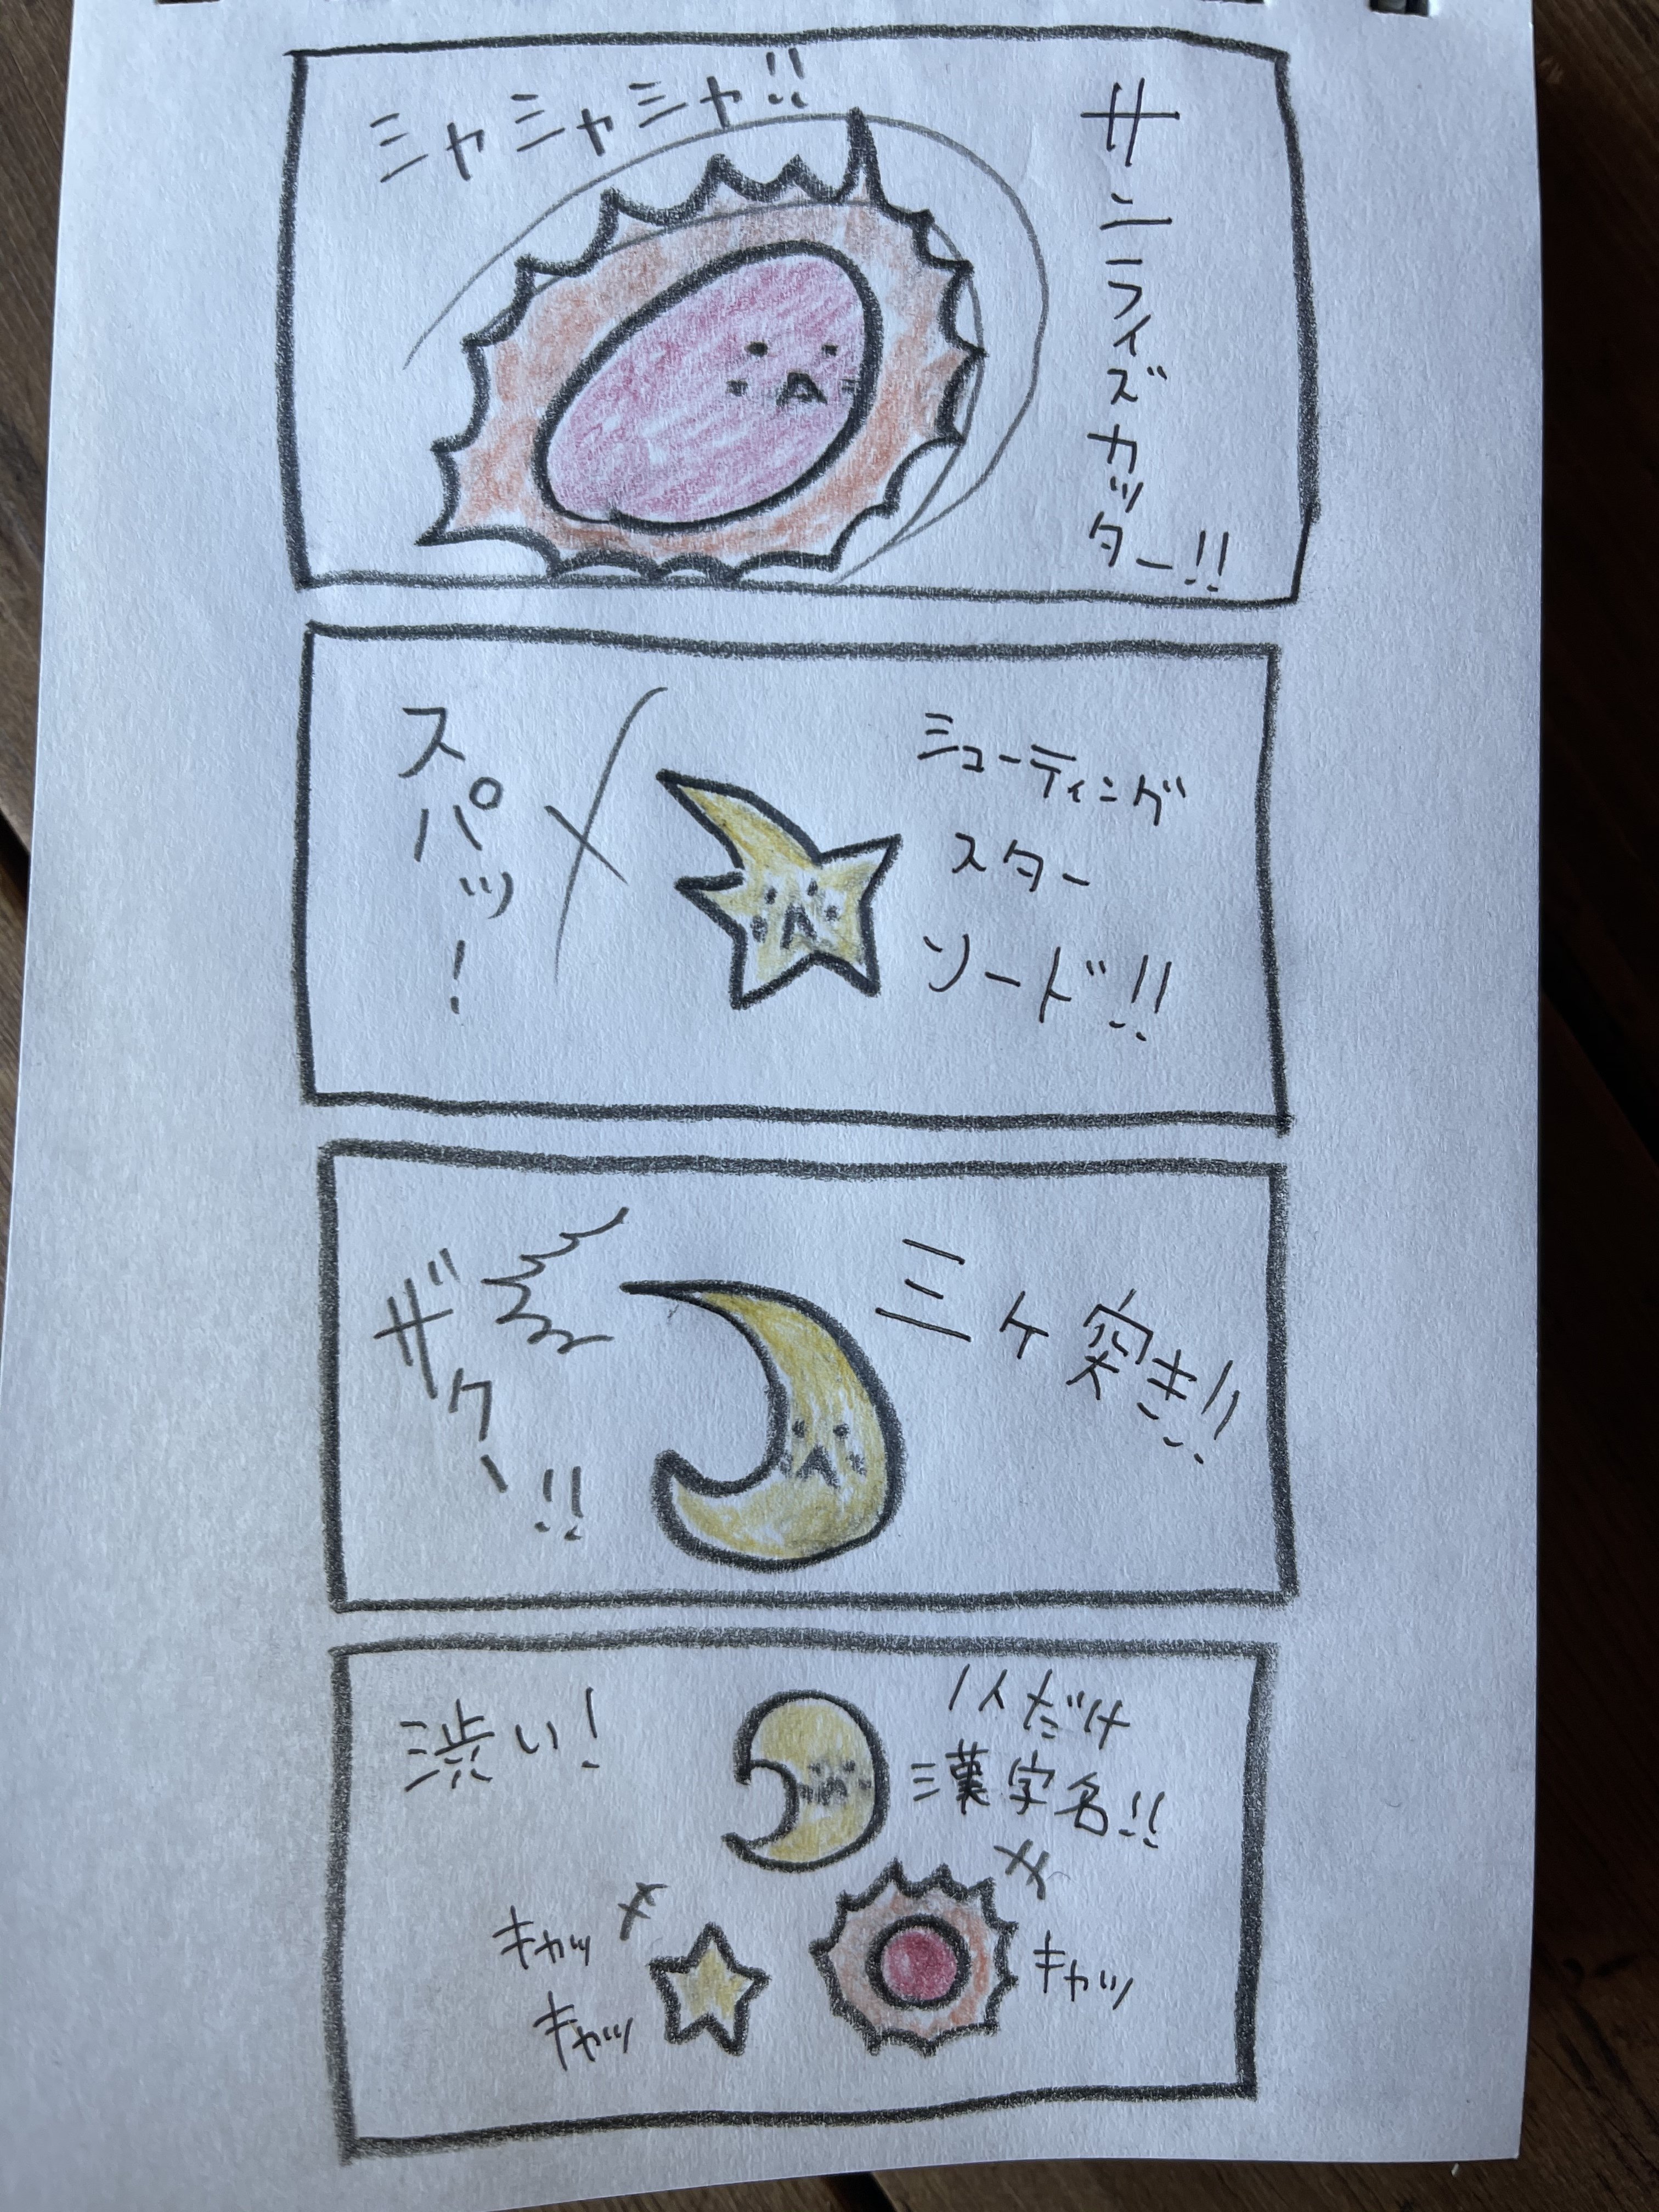 サンライズカッター!!
ミャミャミャ!!
ミューティング
スター
ソード!!
スパッ!
三ケ突き!!
ザクー!!
1人だけ
漢字名!!
渋い!
キャッ
キャッ
キャッ